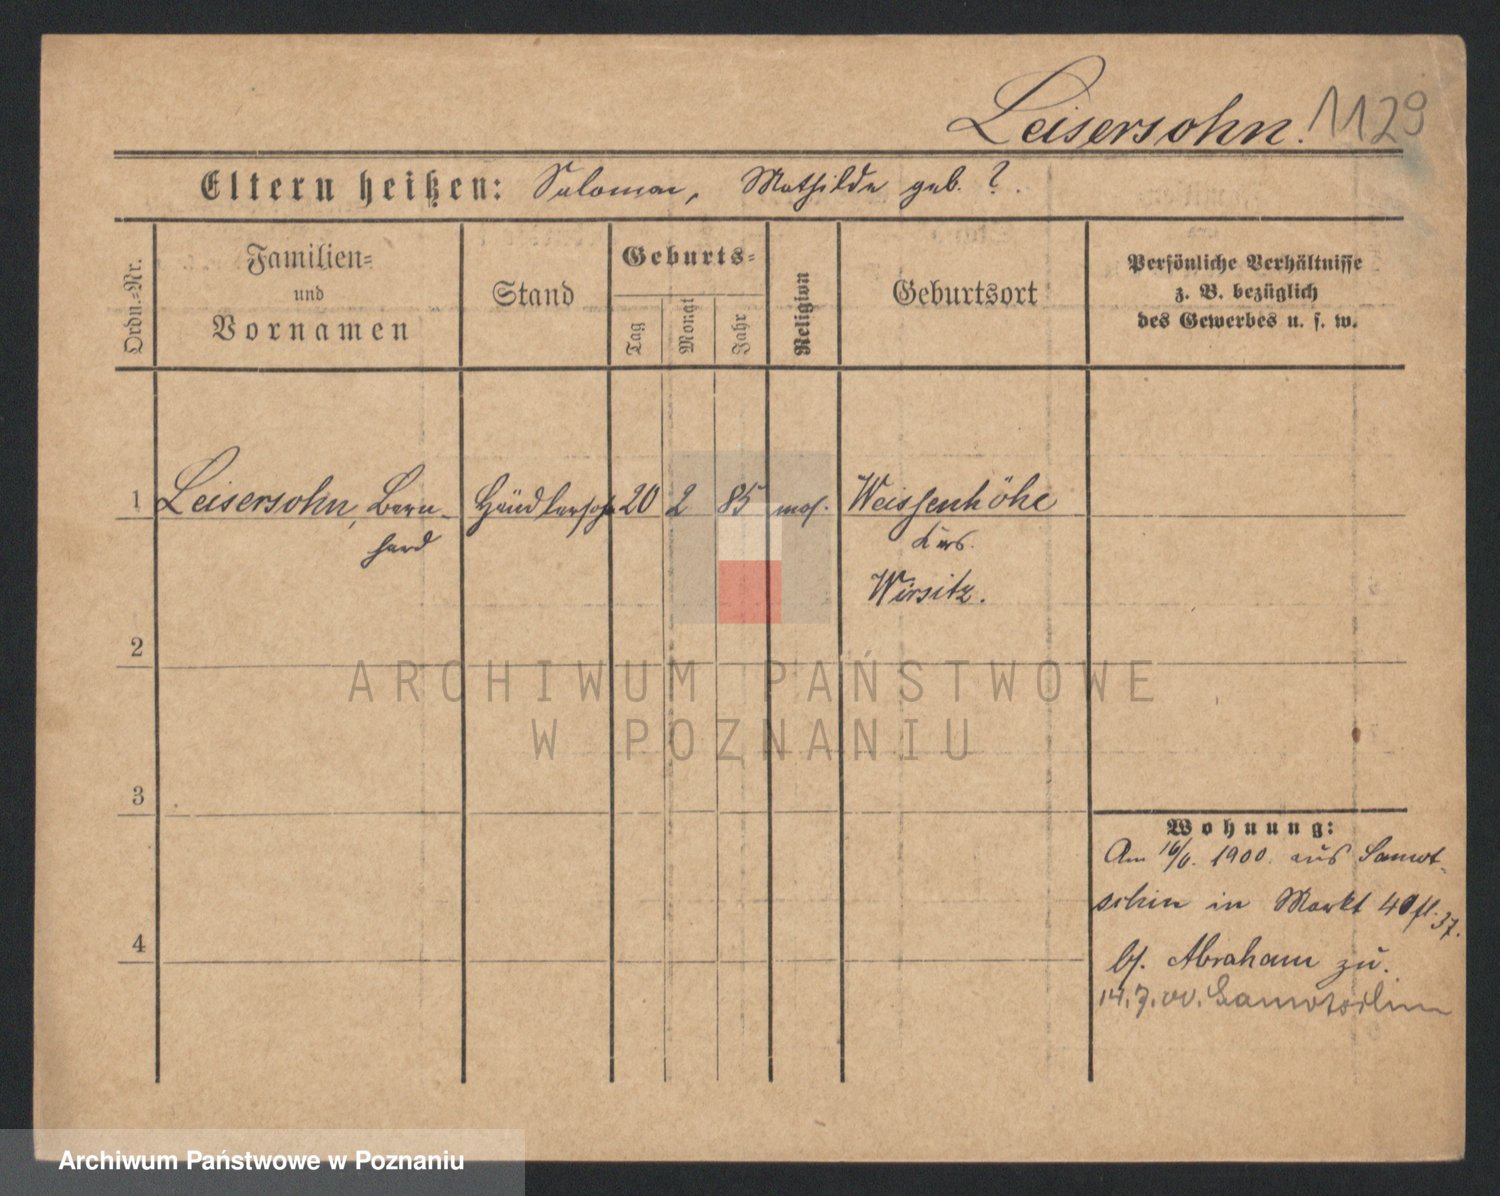 Leisersohn. 1129
Eltern heißen: Salomon, Mathilde geb. ?.
Ordn.=Nr.
Familien=
und
Vornamen
Stand
Geburts=
Tag
Monat
Jahr
Religion
Geburtsort
Persönliche Verhältnisse
z. B. bezüglich
des Gewerbes u. s. w.
1 Leisersohn, Bern- 20 2 85 mos. Weissenhöhe
hard
Wirsitz.
2
ARCHIWUM PAŃSTWOWE
W POZNANIU
3
4
Wohnung:
Am 1900. aus Samot-
schin in Markt 37.
bei Abraham zu.
Samotschin
Archiwum Państwowe w Poznaniu